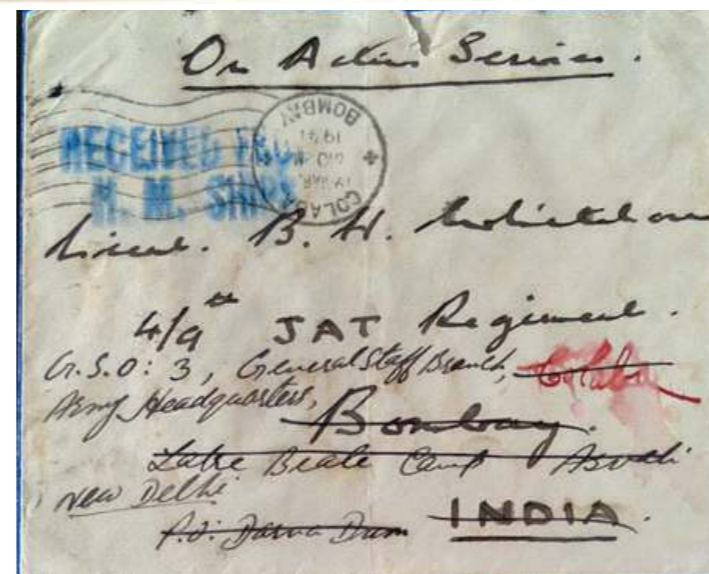 On Active Service.
RECEIVED FROM
H. M. SHIPS
COLABA
19 MAR.
1941
BOMBAY
Lieut. B. H.
4/9th JAT Regiment.
G.S.O: 3, General Staff Branch, Colaba
Army Headquarters,
Bombay.
Lake Beale Camp Asvali
New Delhi
P.O: Darna Dam INDIA.